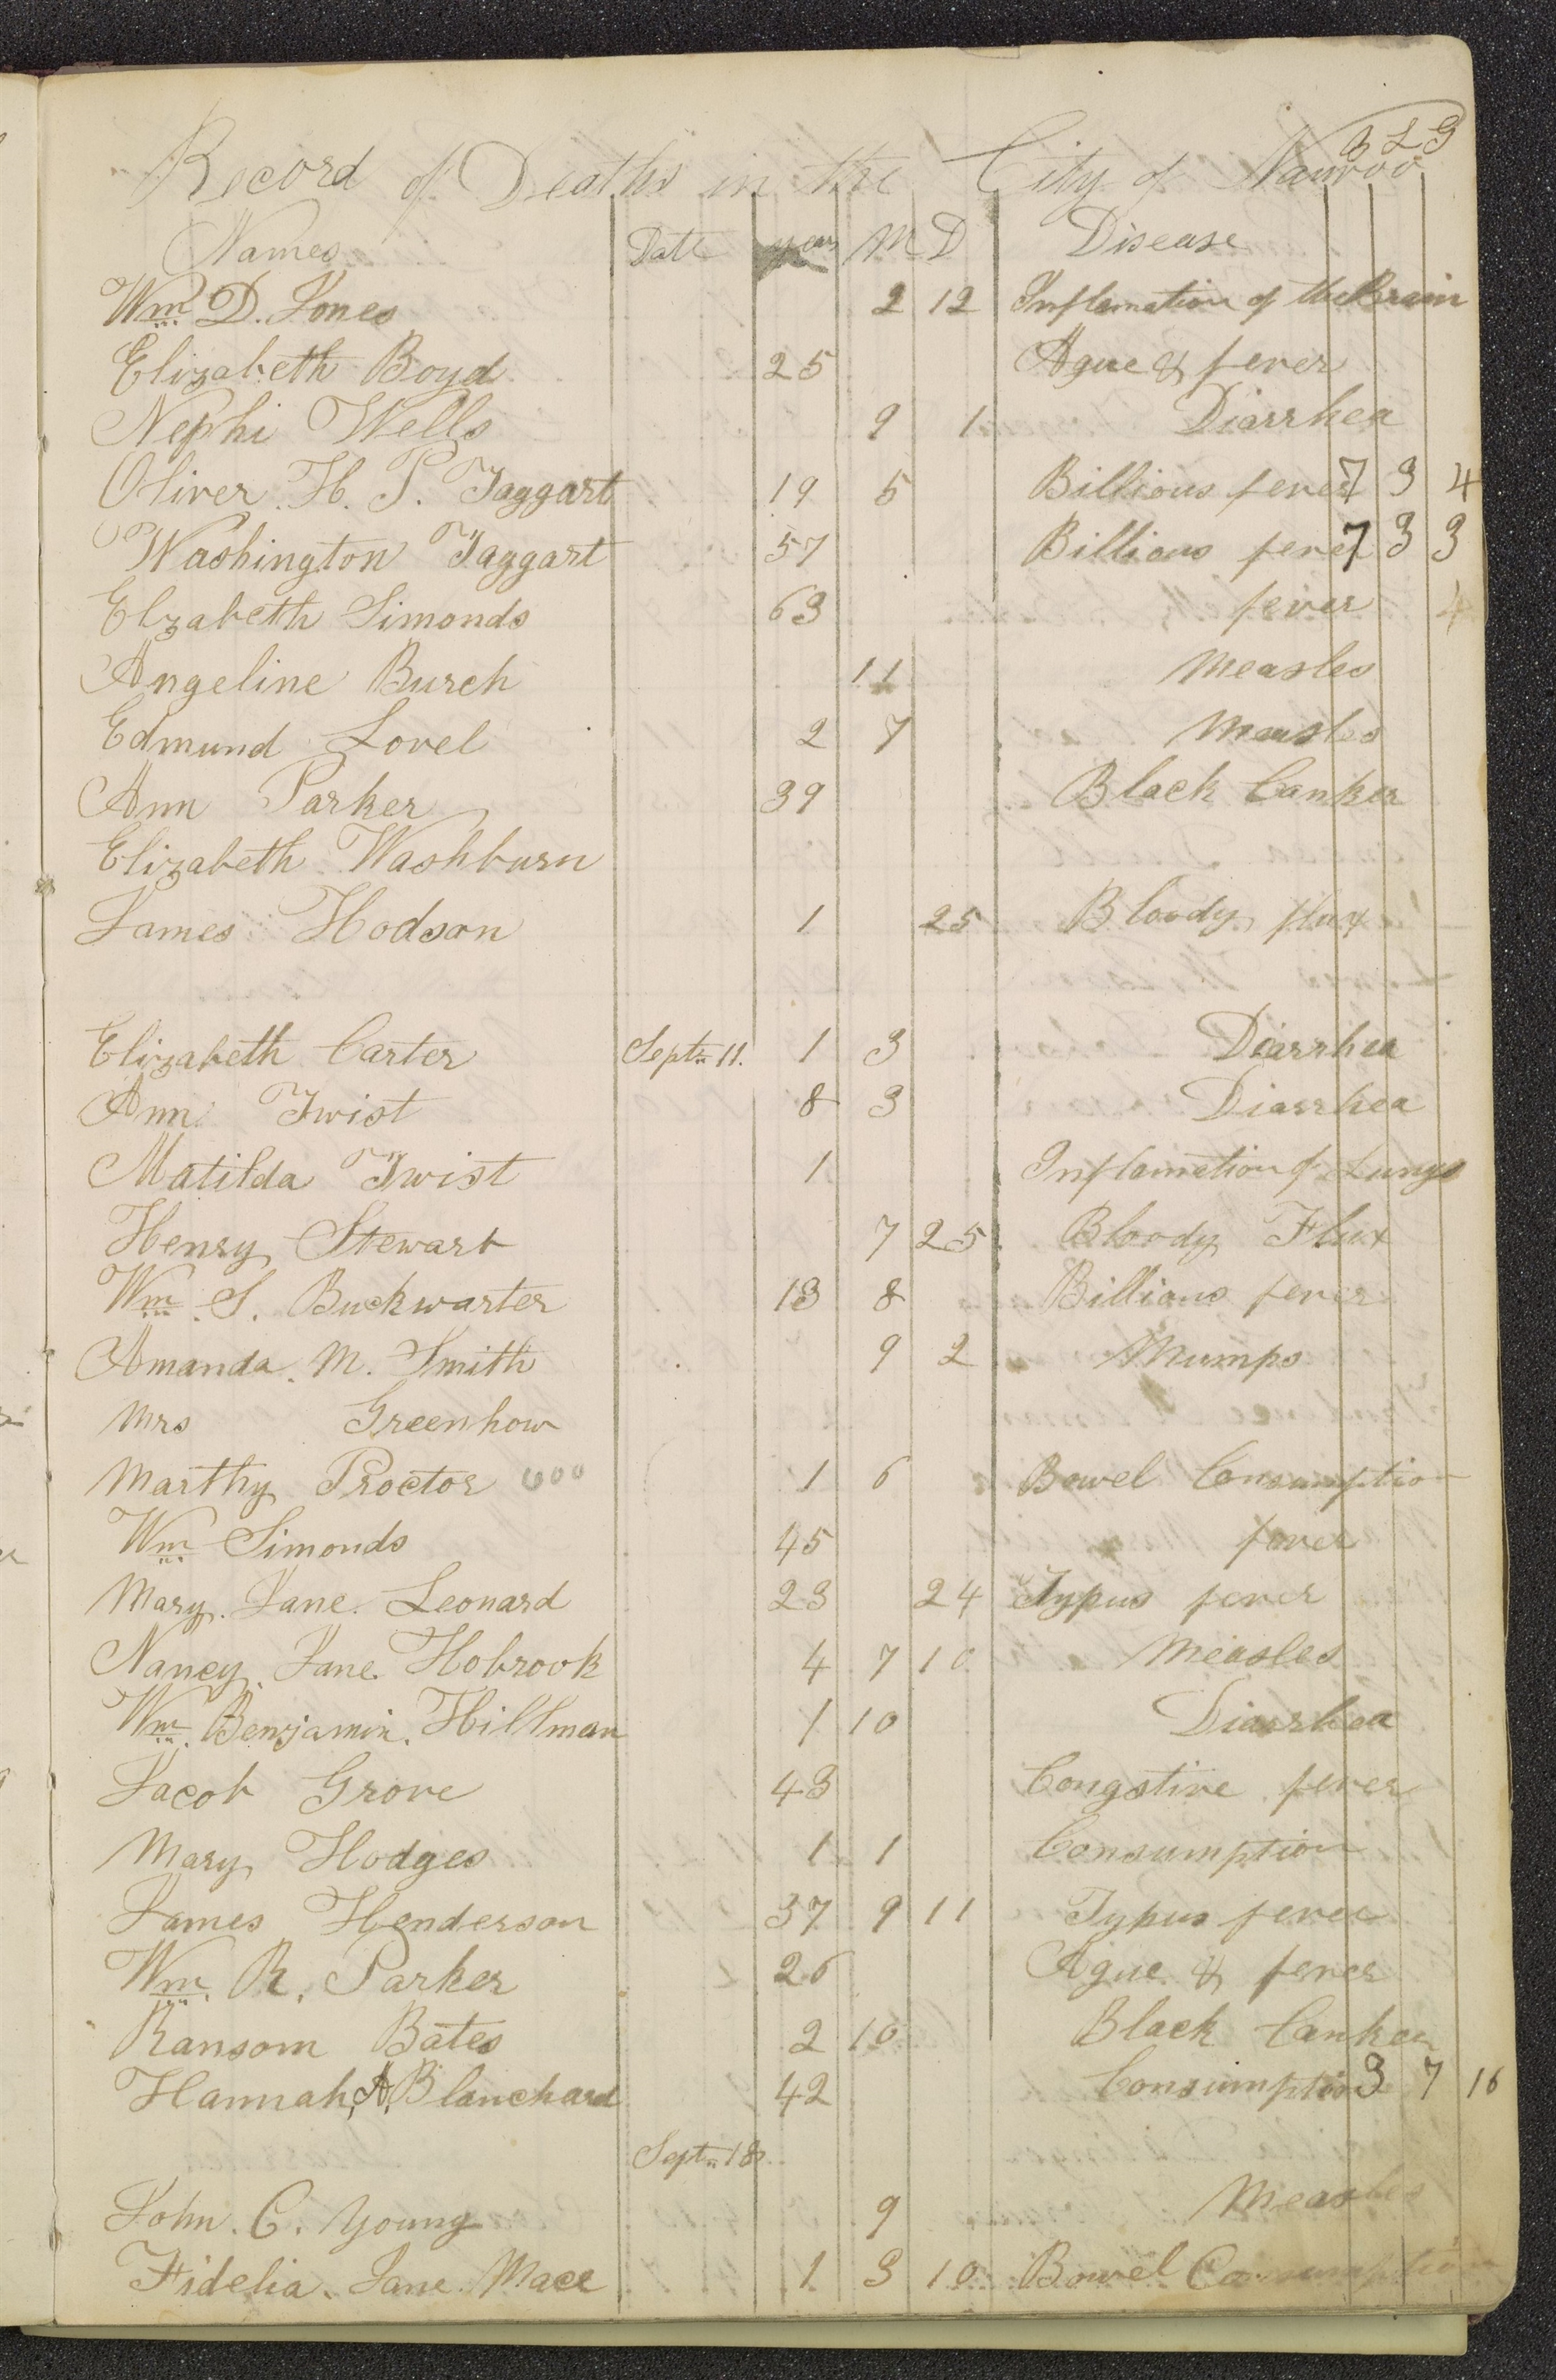 Record of Deaths in the City of Nauvoo
B L G
Names Date years M D Disease
Wm D. Jones 2 12 Inflamation of the Brain
Elizabeth Boyd 25 Ague & fever
Nephi Wells 9 1 Diarrhea
Oliver H. P. Taggart 19 5 Billious fever 7 3 4
Washington Taggart 57 Billious fever 7 3 3
Elzabeth Simonds 63 fever 4
Angeline Burch 11 Measles
Edmund Lovel 2 7 Measles
Ann Parker 39 Black Canker
Elizabeth Washburn
James Hodson 1 25 Bloody flux
Elizabeth Carter Septr 11. 1 3 Diarrhea
Ann Twist 8 3 Diarrhea
Matilda Twist 1 Inflamation of Lungs
Henry Stewart 7 25 Bloody Flux
Wm S. Buckwarter 13 8 Billious fever
Amanda. M. Smith 9 2 Mumps
Mrs Greenhow
Marthy Proctor 1 6 Bowel Consumption
Wm Simonds 45 fever
Mary. Jane. Leonard 23 24 Typus fever
Nancy. Jane. Hobrook 4 7 10 Measles
Wm. Benjamin. Hillman 1 10 Diarrhea
Jacob Grove 43 Congstive fever
Mary Hodges 1 1 Consumption
James Henderson 37 9 11 Typus fever
Wm. R. Parker 26 Ague & fever
Ransom Bates 2 10 Black Canker
Hannah, A, Blanchard 42 Consumption 3 7 16
Septr 18
John. C. Young 9 Measles
Fidelia. Jane. Mace 1 3 10 Bowel Consumption